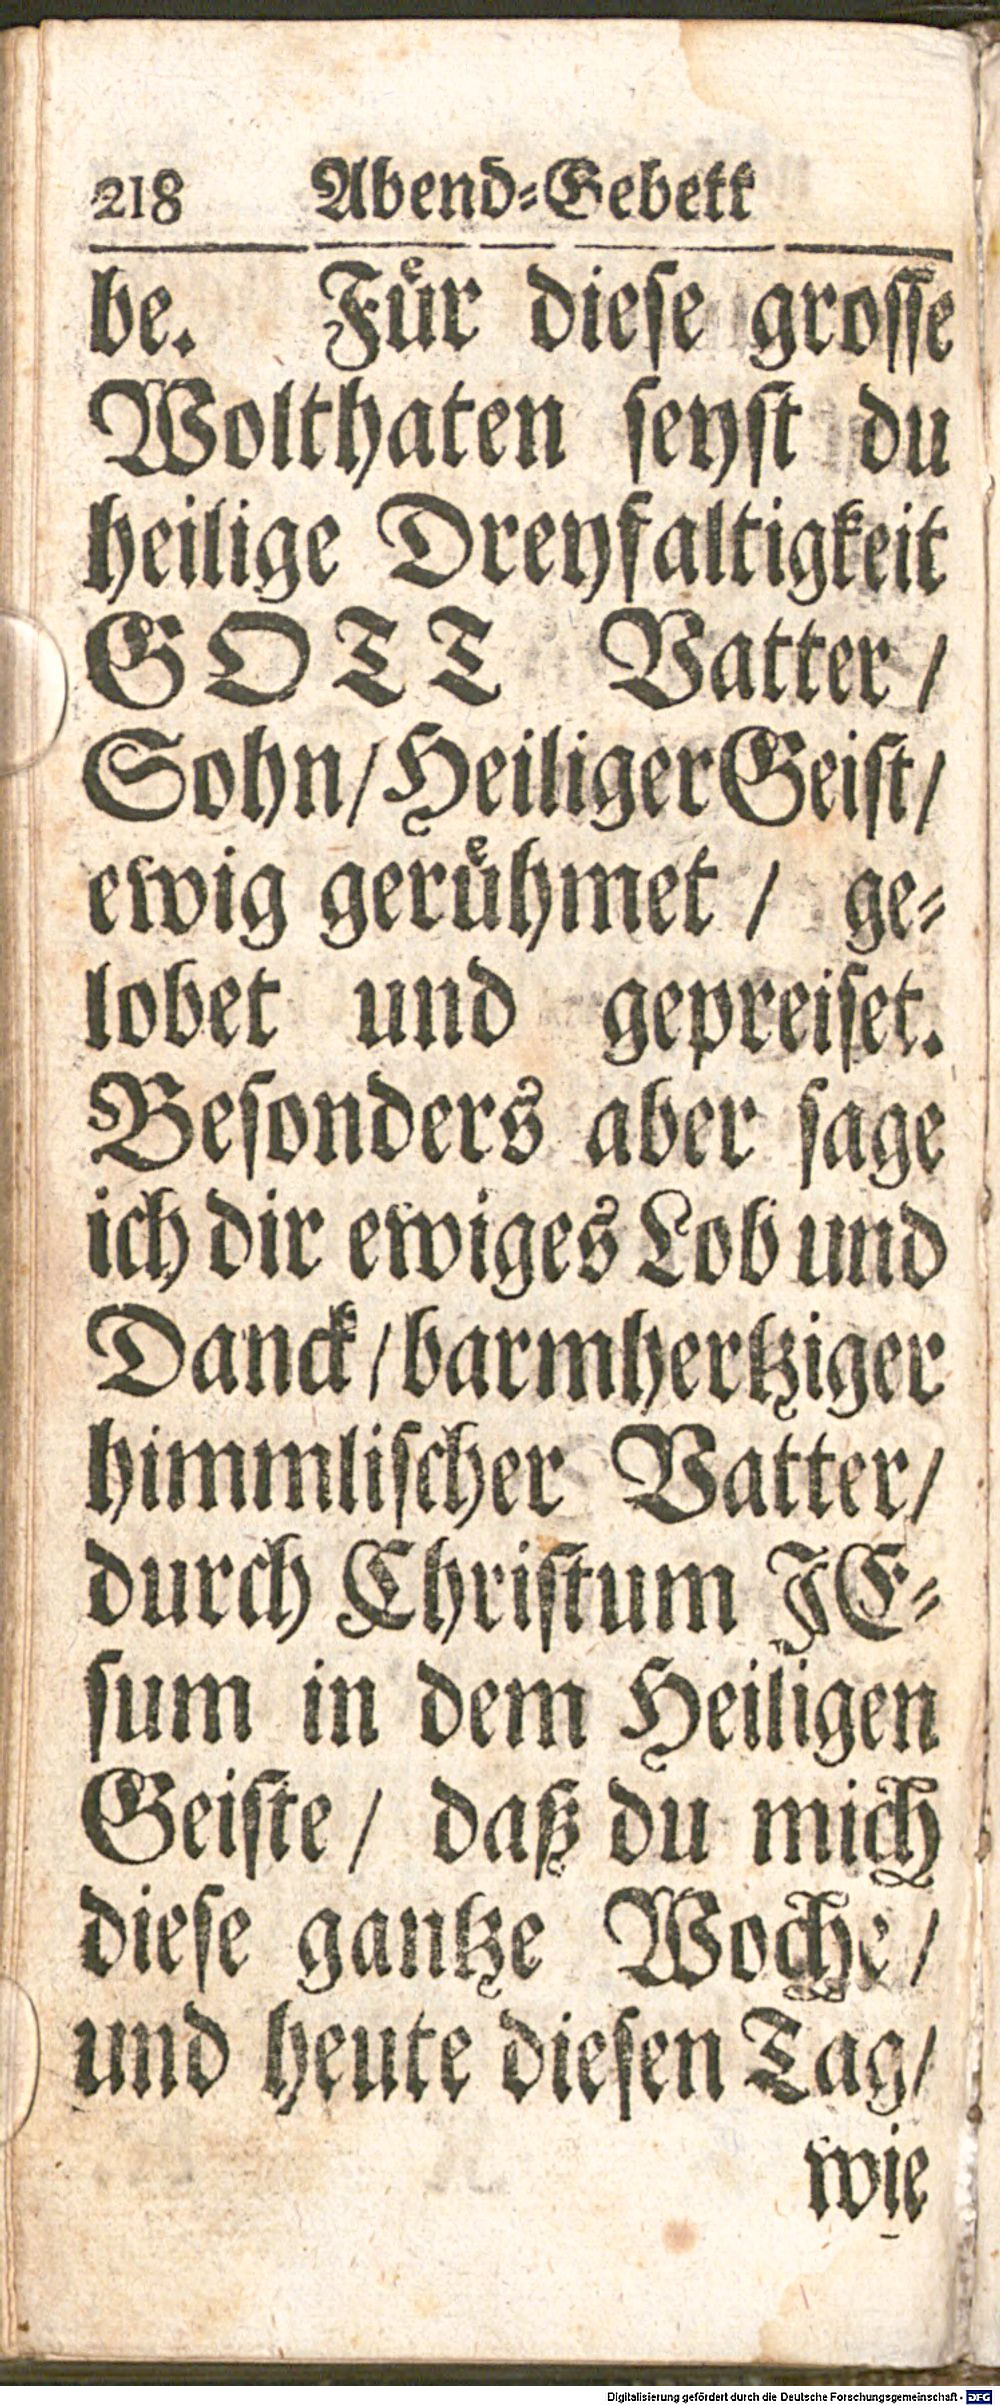 218 Abend-Gebett
be. Fuͤr dieſe groſſe
Wolthaten ſeyſt du
heilige Dreyfaltigkeit
GOTT Vatter /
Sohn / Heiliger Geiſt /
ewig geruͤhmet / ge-
lobet und gepreiſet.
Beſonders aber ſage
ich dir ewiges Lob und
Danck / barmhertziger
himmliſcher Vatter /
durch Chriſtum JE-
ſum in dem Heiligen
Geiſte / daß du mich
dieſe gantze Woche /
und heute dieſen Tag /
wie
Digitalisierung gefördert durch die Deutsche Forschungsgemeinschaft - DFG